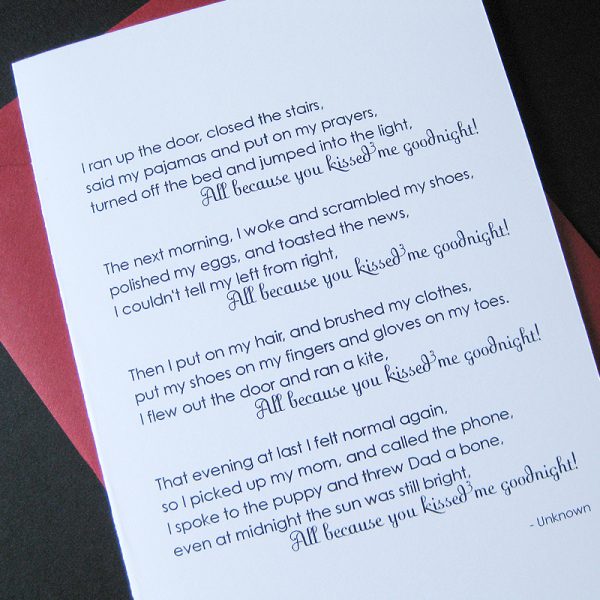 I ran up the door, closed the stairs,
said my pajamas and put on my prayers,
turned off the bed and jumped into the light,
All because you kissed me goodnight!
The next morning, I woke and scrambled my shoes,
polished my eggs, and toasted the news,
I couldn't tell my left from right,
All because you kissed me goodnight!
Then I put on my hair, and brushed my clothes,
put my shoes on my fingers and gloves on my toes.
I flew out the door and ran a kite,
All because you kissed me goodnight!
That evening at last I felt normal again,
so I picked up my mom, and called the phone,
I spoke to the puppy and threw Dad a bone,
even at midnight the sun was still bright,
All because you kissed me goodnight!
- Unknown